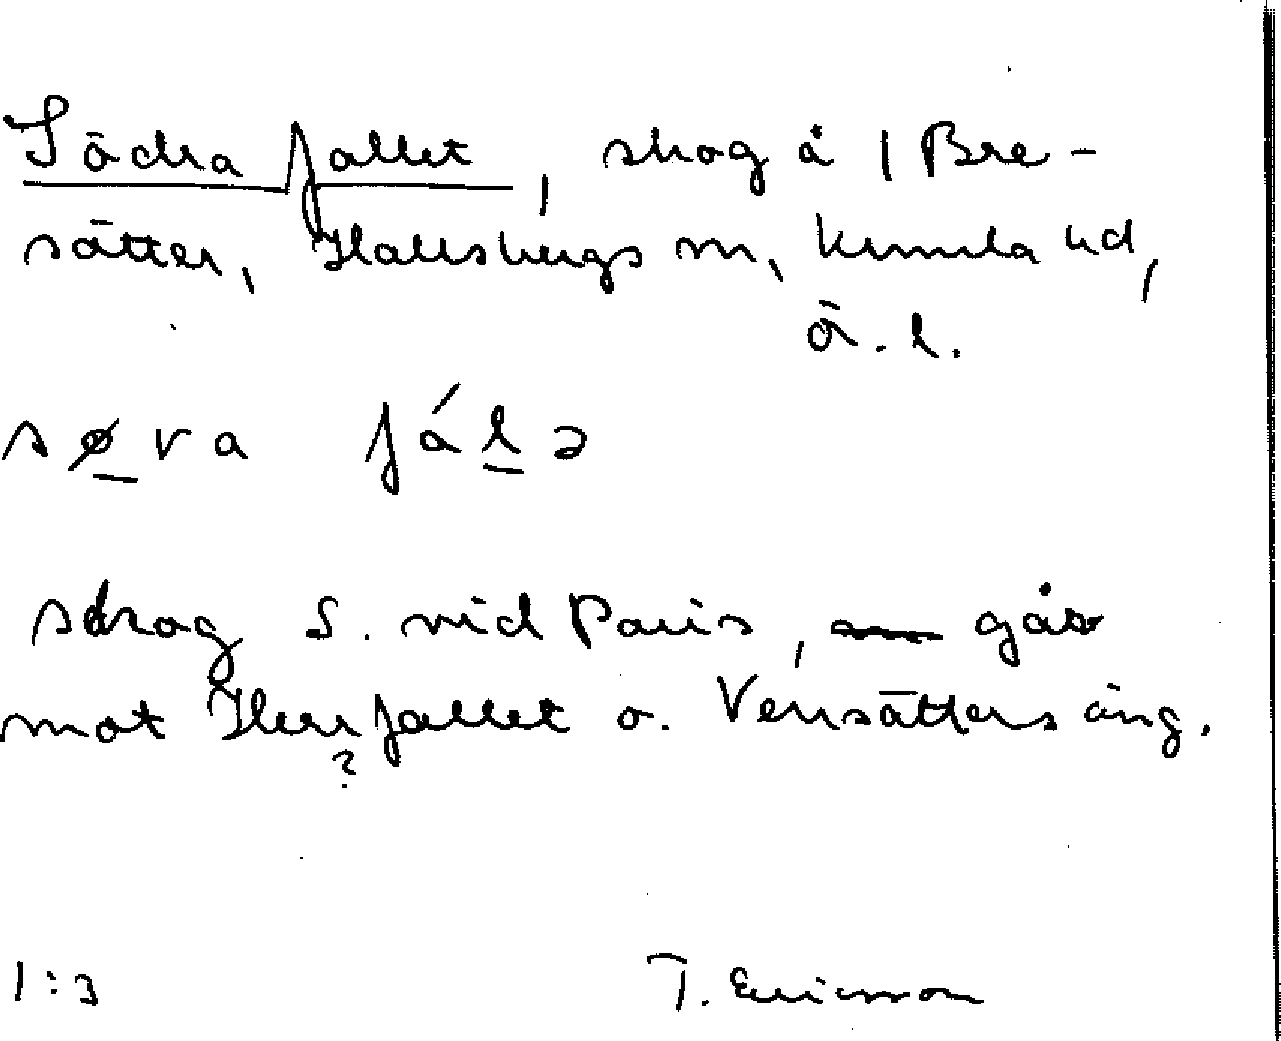 Södra fallet, skog å 1 Bre-
sätter, Hallsbergs sn, Kumla hd,
Ö. l.
søva fálə
skog S. vid Paris, går
mot Herrfallet o. Vensätters äng.
?
1:3
T. Ericsson